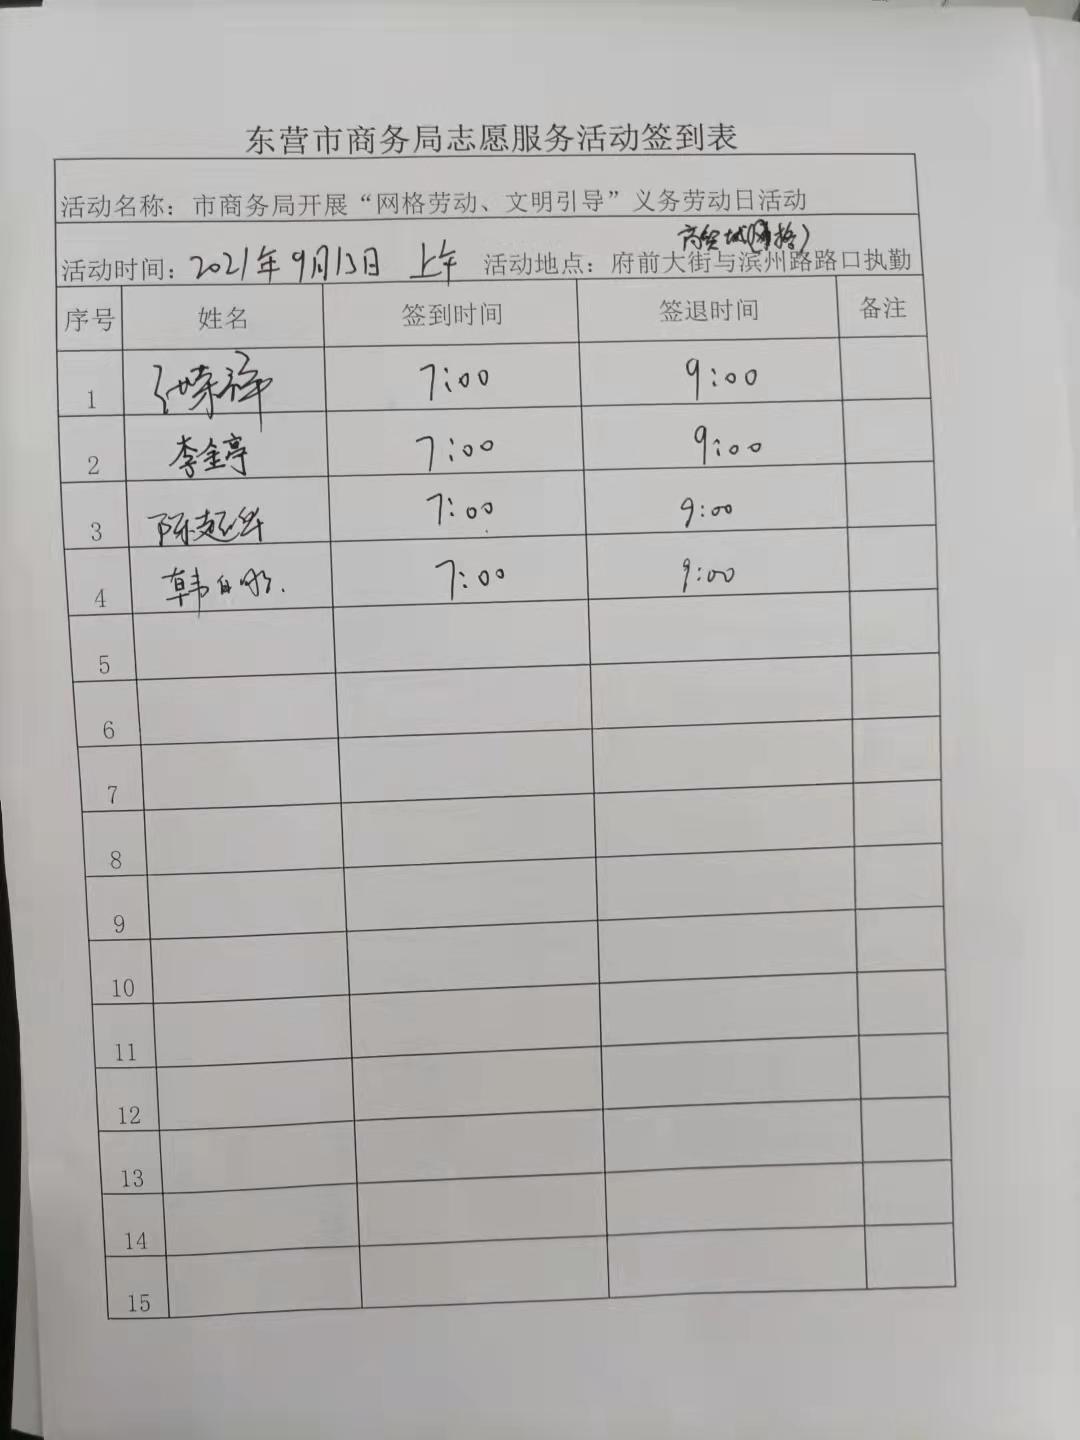 东营市商务局志愿服务活动签到表
活动名称：市商务局开展“网格劳动、文明引导”义务劳动日活动
商贸城(网格)
活动时间：2021年9月13日 上午 活动地点：府前大街与滨州路路口执勤
序号 姓名 签到时间 签退时间 备注
1 7:00 9:00
2 李金亭 7:00 9:00
3 7:00 9:00
4 7:00 9:00
5
6
7
8
9
10
11
12
13
14
15